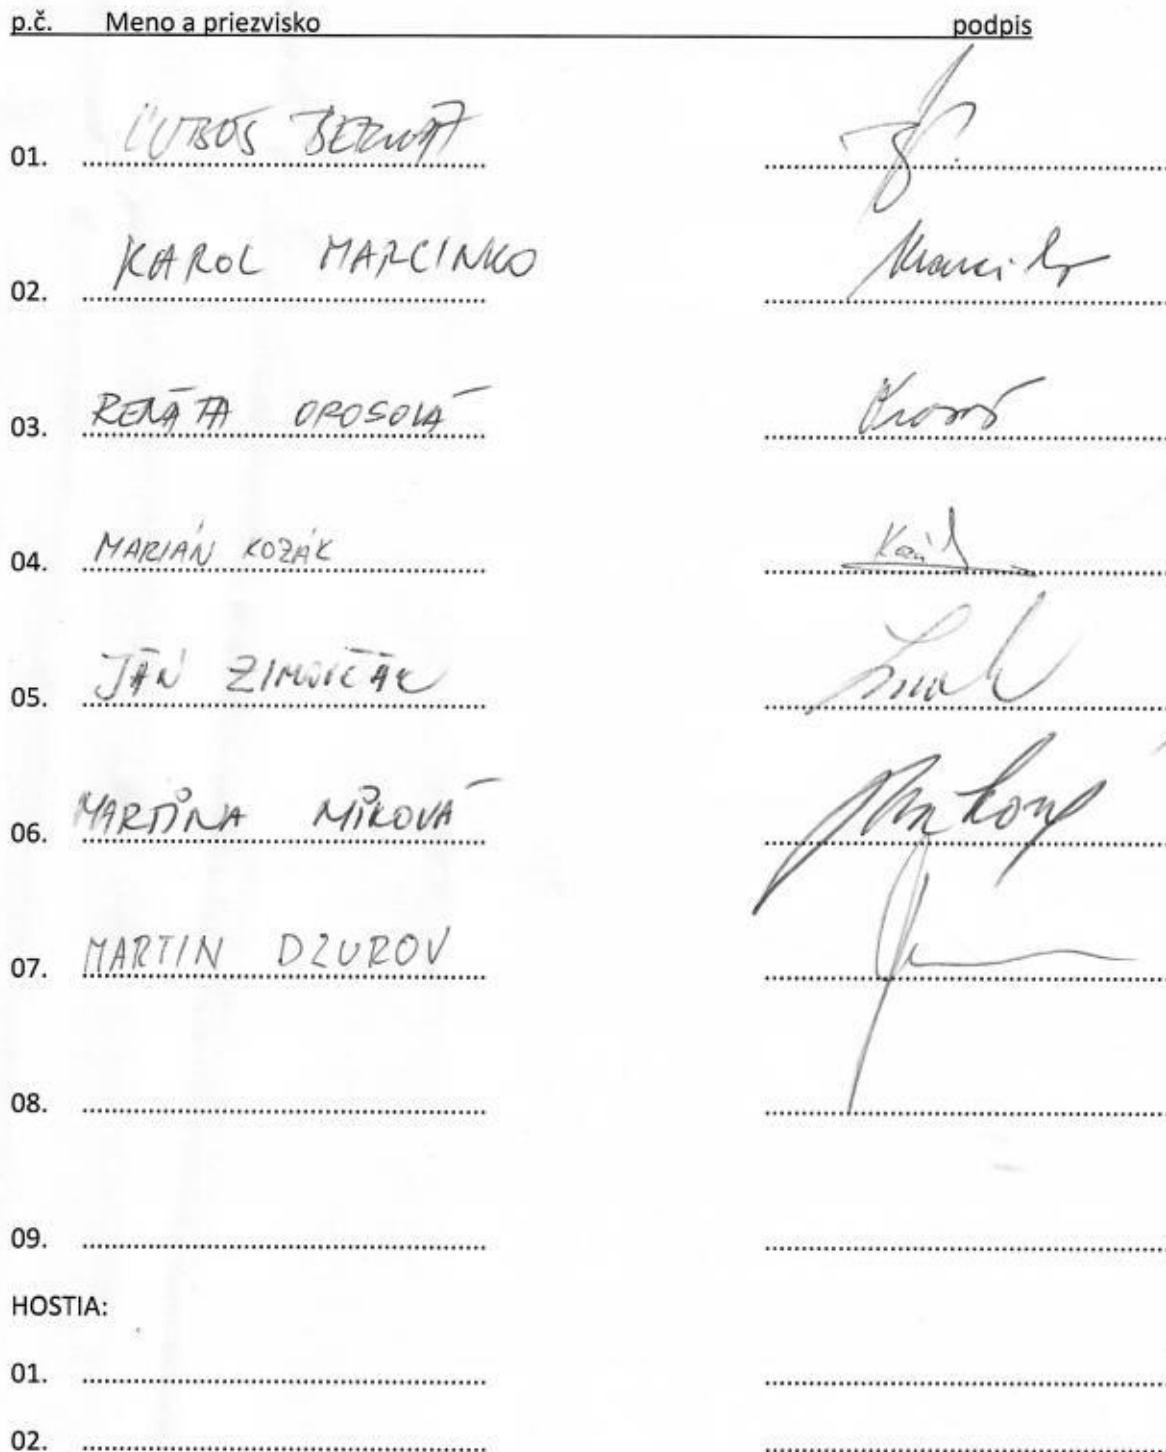 p.č. Meno a priezvisko podpis
01. ĽUBOŠ BERNÁT
02. KAROL MARCINKO
03. RENÁTA OROSOVÁ
04. MARIÁN KOZÁK
05. JÁN ZIMOVČÁK
06. MARTINA MIKOVÁ
07. MARTIN DZUROV
08.
09.
HOSTIA:
01.
02.